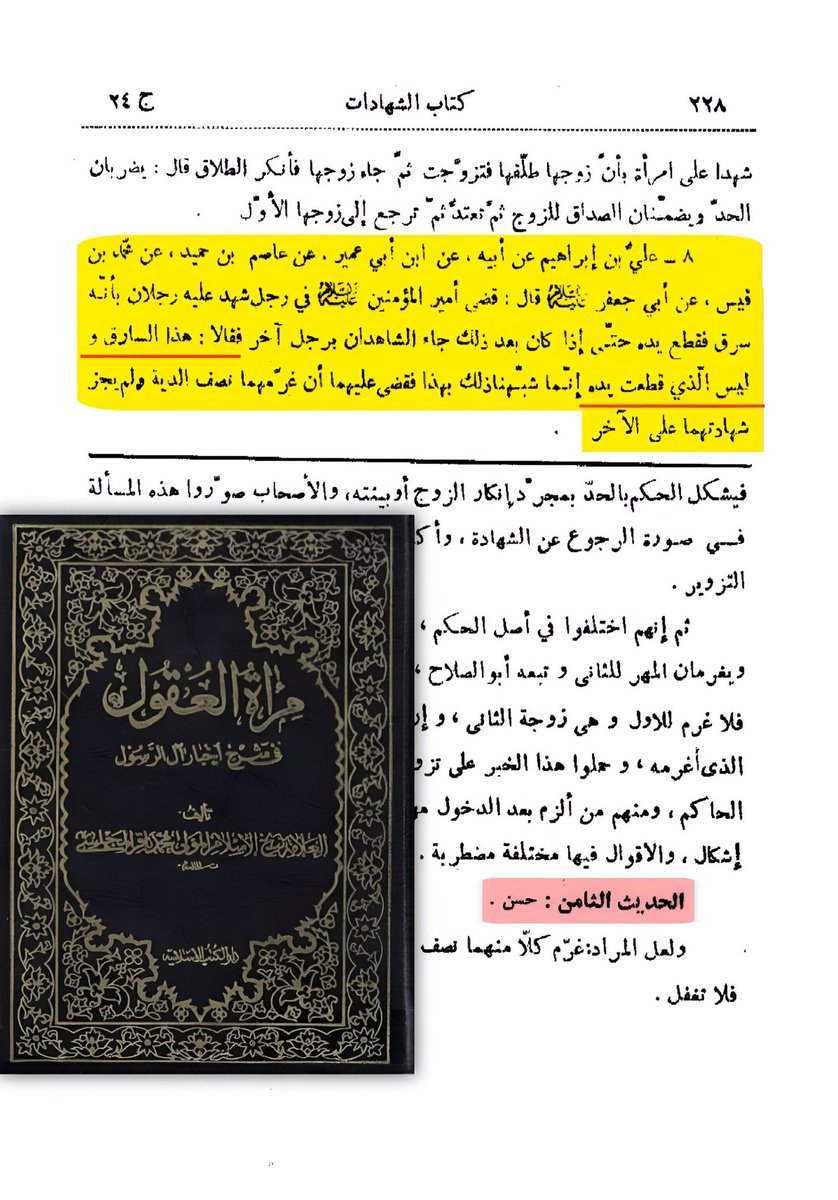 ٢٢٨
كتاب الشهادات
ج ٢٤
شهدا على امرأة بأنَّ زوجها طلّقها فتزوَّجت ثمَّ جاء زوجها فأنكر الطلاق قال : يضربان
الحدَّ ويضمّنان الصداق للزوج ثمَّ تعتدُّ ثمَّ ترجع إلى زوجها الأوَّل .
٨ ــ عليُّ بن إبراهيم عن أبيه ، عن ابن أبي عمير ، عن عاصم بن حميد ، عن محمّد بن
قيس ، عن أبي جعفر عليه السلام قال : قضى أمير المؤمنين عليه السلام في رجل شهد عليه رجلان بأنّه
سرق فقطع يده حتّى إذا كان بعد ذلك جاء الشاهدان برجل آخر فقالا : هذا السارق و
ليس الّذي قطعت يده إنّما شبّهنا ذلك بهذا فقضى عليهما أن غرّمهما نصف الدية ولم يجز
شهادتهما على الآخر .
فيشكل الحكم بالحدّ بمجرّد إنكار الزوج أو بينته، والأصحاب صوّروا هذه المسألة
فــي صورة الرجوع عن الشهادة ،
التزوير .
ثم إنهم اختلفوا في أصل الحكم ،
ويغرمان المهر للثانى و تبعه أبو الصلاح ،
فلا غرم للاول و هي زوجة الثانى ،
الذى أغرمه ، و حملوا هذا الخبر على
الحاكم ، ومنهم من ألزم بعد الدخول
إشكال ، والاقوال فيها مختلفة مضطربة .
الحديث الثامن : حسن .
ولعل المراد: غرّم كلّا منهما نصف
فلا تغفل .
مرآة العقول
في شرح أخبار آل الرسول
تأليف
العلامة شيخ الإسلام المولى محمد باقر المجلسي
دار الكتب الإسلامية